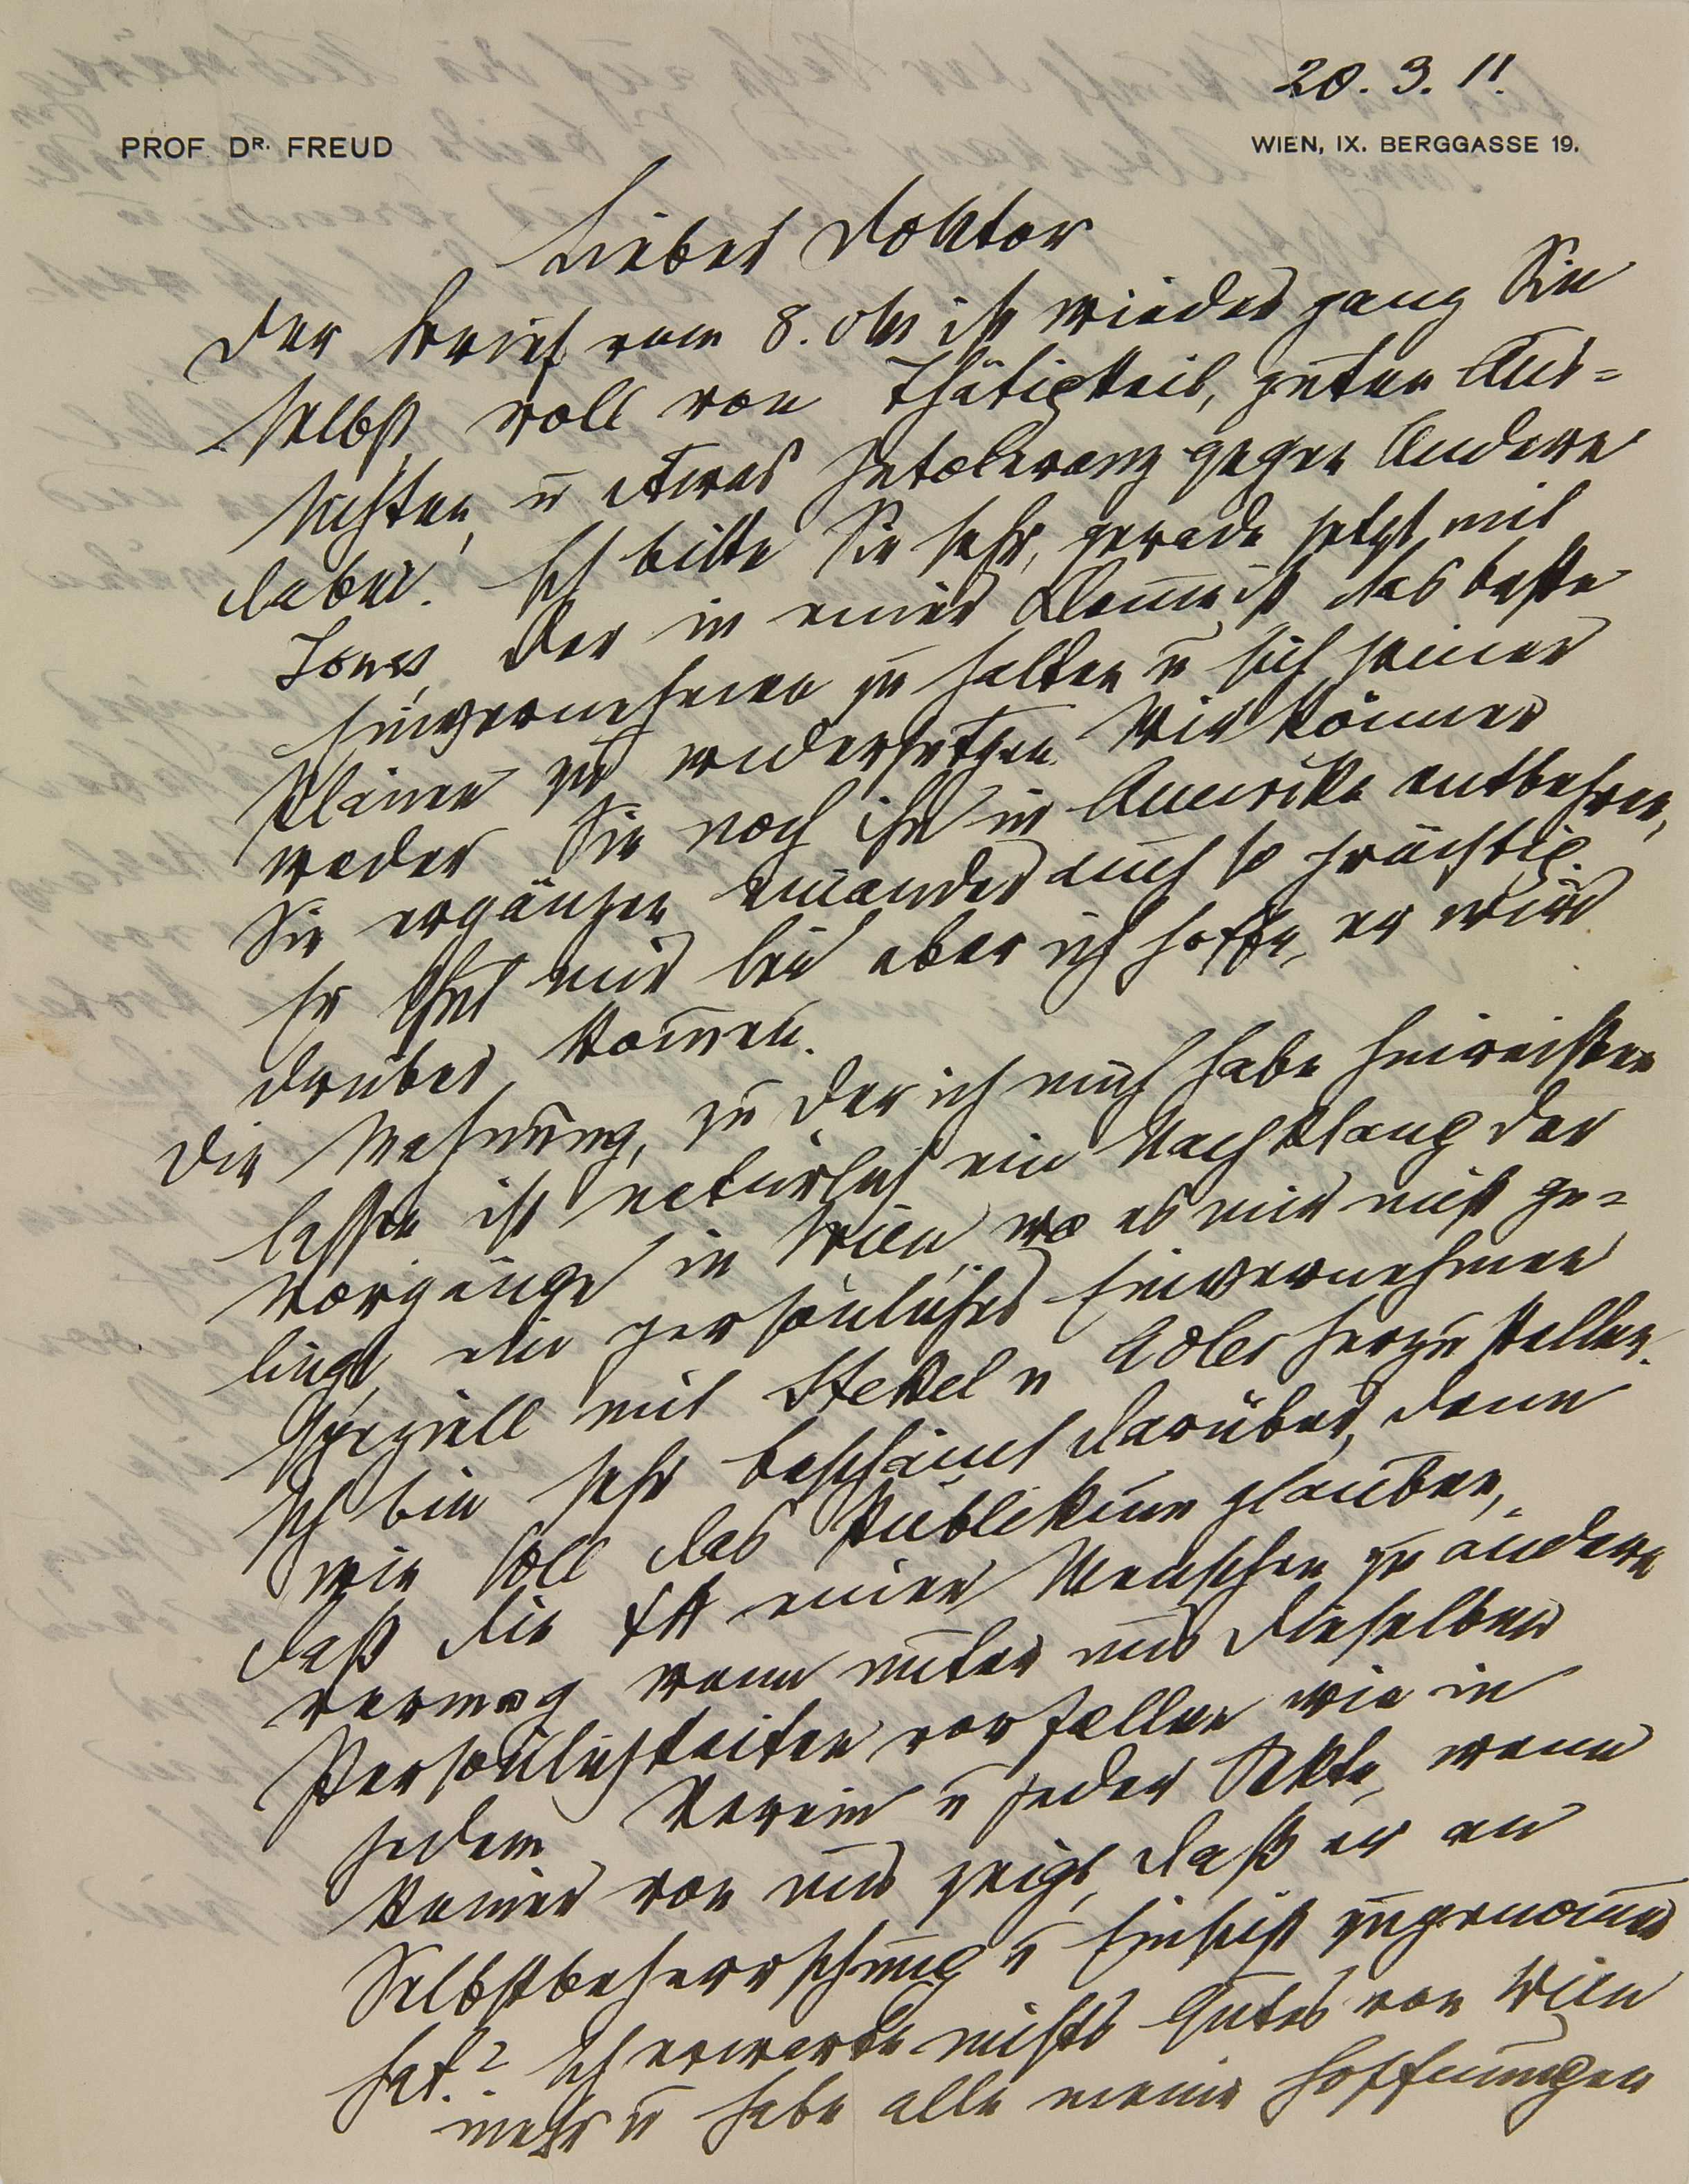 20. 3. 11.
PROF. DR. FREUD
WIEN, IX. BERGGASSE 19.
Lieber Doktor
Der Brief vom 8. dM ist wieder ganz Sie
selbst, voll von Thätigkeit, guten Aus-
sichten, u etwas Intoleranz gegen Andere
dabei. Ich bitte Sie sehr, gerade jetzt mit
Jones, der in einer ist das beste
Einvernehmen zu halten u sich seiner
zu widersetzen. Wir können
weder Sie noch ihn in Amerika entbehren,
Sie ergänzen einander auch so prächtig.
Er thut mir leid aber ich hoffe, er wird
drüber kommen.
Die Mahnung, zu der ich mich habe hinreißen
lassen ist natürlich ein Nachklang der
Vorgänge in Wien, wo es mir nicht ge-
lingt, ein persönliches Einvernehmen
speziell mit Stekel u Adler herzustellen.
Ich bin sehr beschämt darüber, denn
wie soll das Publikum glauben,
daß die ΨA einen Menschen zu ändern
vermag wenn unter uns dieselben
Persönlichkeiten vorfallen wie in
jedem Verein u jeder Sekte, wenn
keiner von uns zeigt, daß er an
Selbstbeherrschung u Einsicht zugenommen
hat? Ich erwarte nichts Gutes von Wien
mehr u habe alle meine Hoffnungen